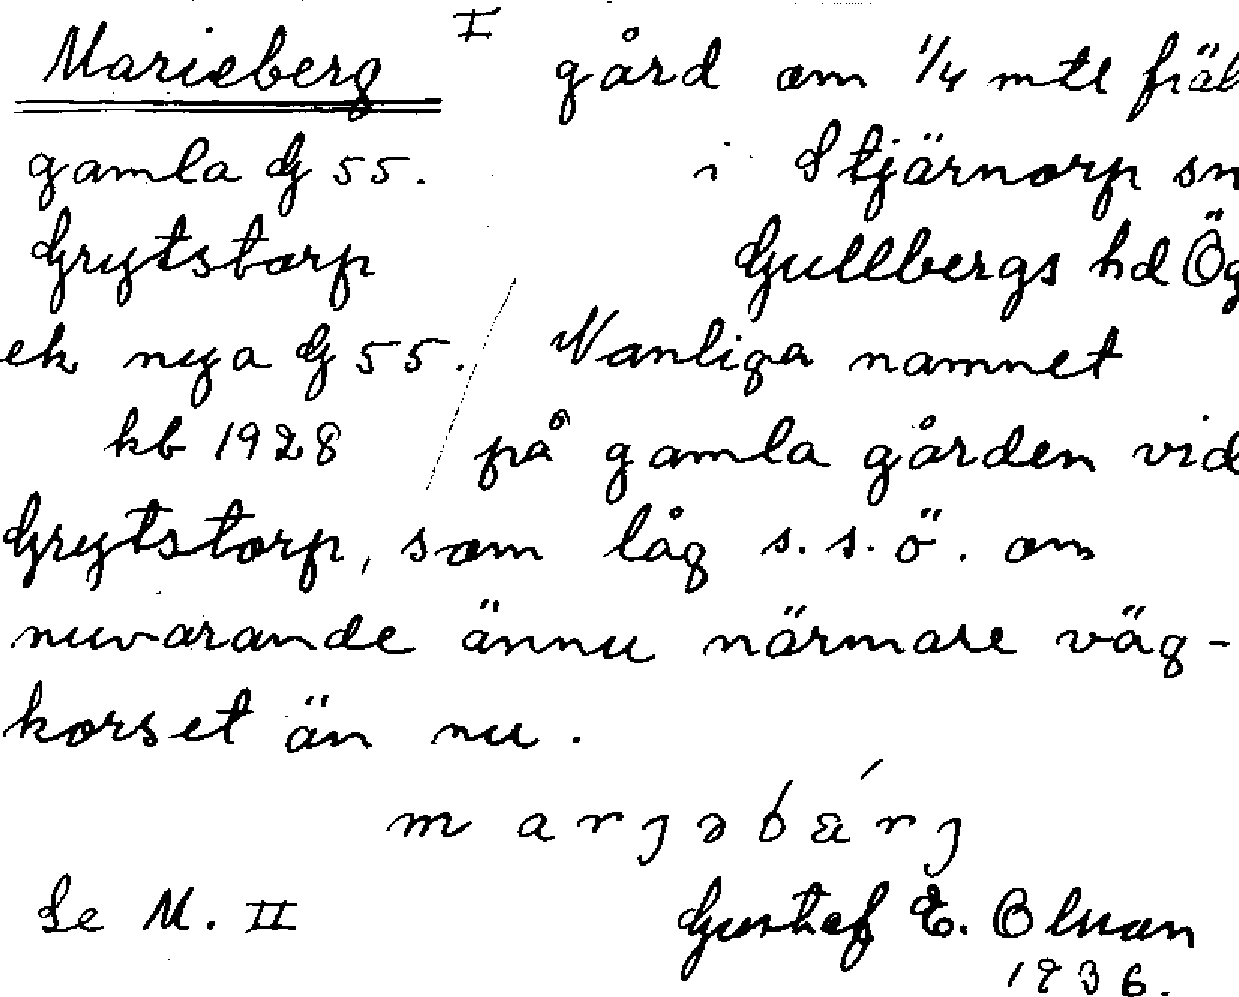 Marieberg I gård om 1/4 mtl fräl
gamla G 55. i Stjärnorp sn
Grytstorp Gullbergs hd Ög
ek nya G 55. / Vanliga namnet
kb 1928 på gamla gården vid
Grytstorp, som låg s.s.ö. om
nuvarande ännu närmare väg-
korset än nu.
marjəbǽrj
Se M. II Gustaf E.
1936.